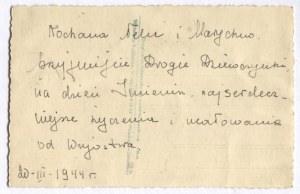 Kochana Nelu i Marychno.
Przyjmijcie Drogie Dziewczynki
na dzień Imienin, najserdecz-
niejsze życzenia i ucałowania
od Wujostwa.
20-III-1944 r.